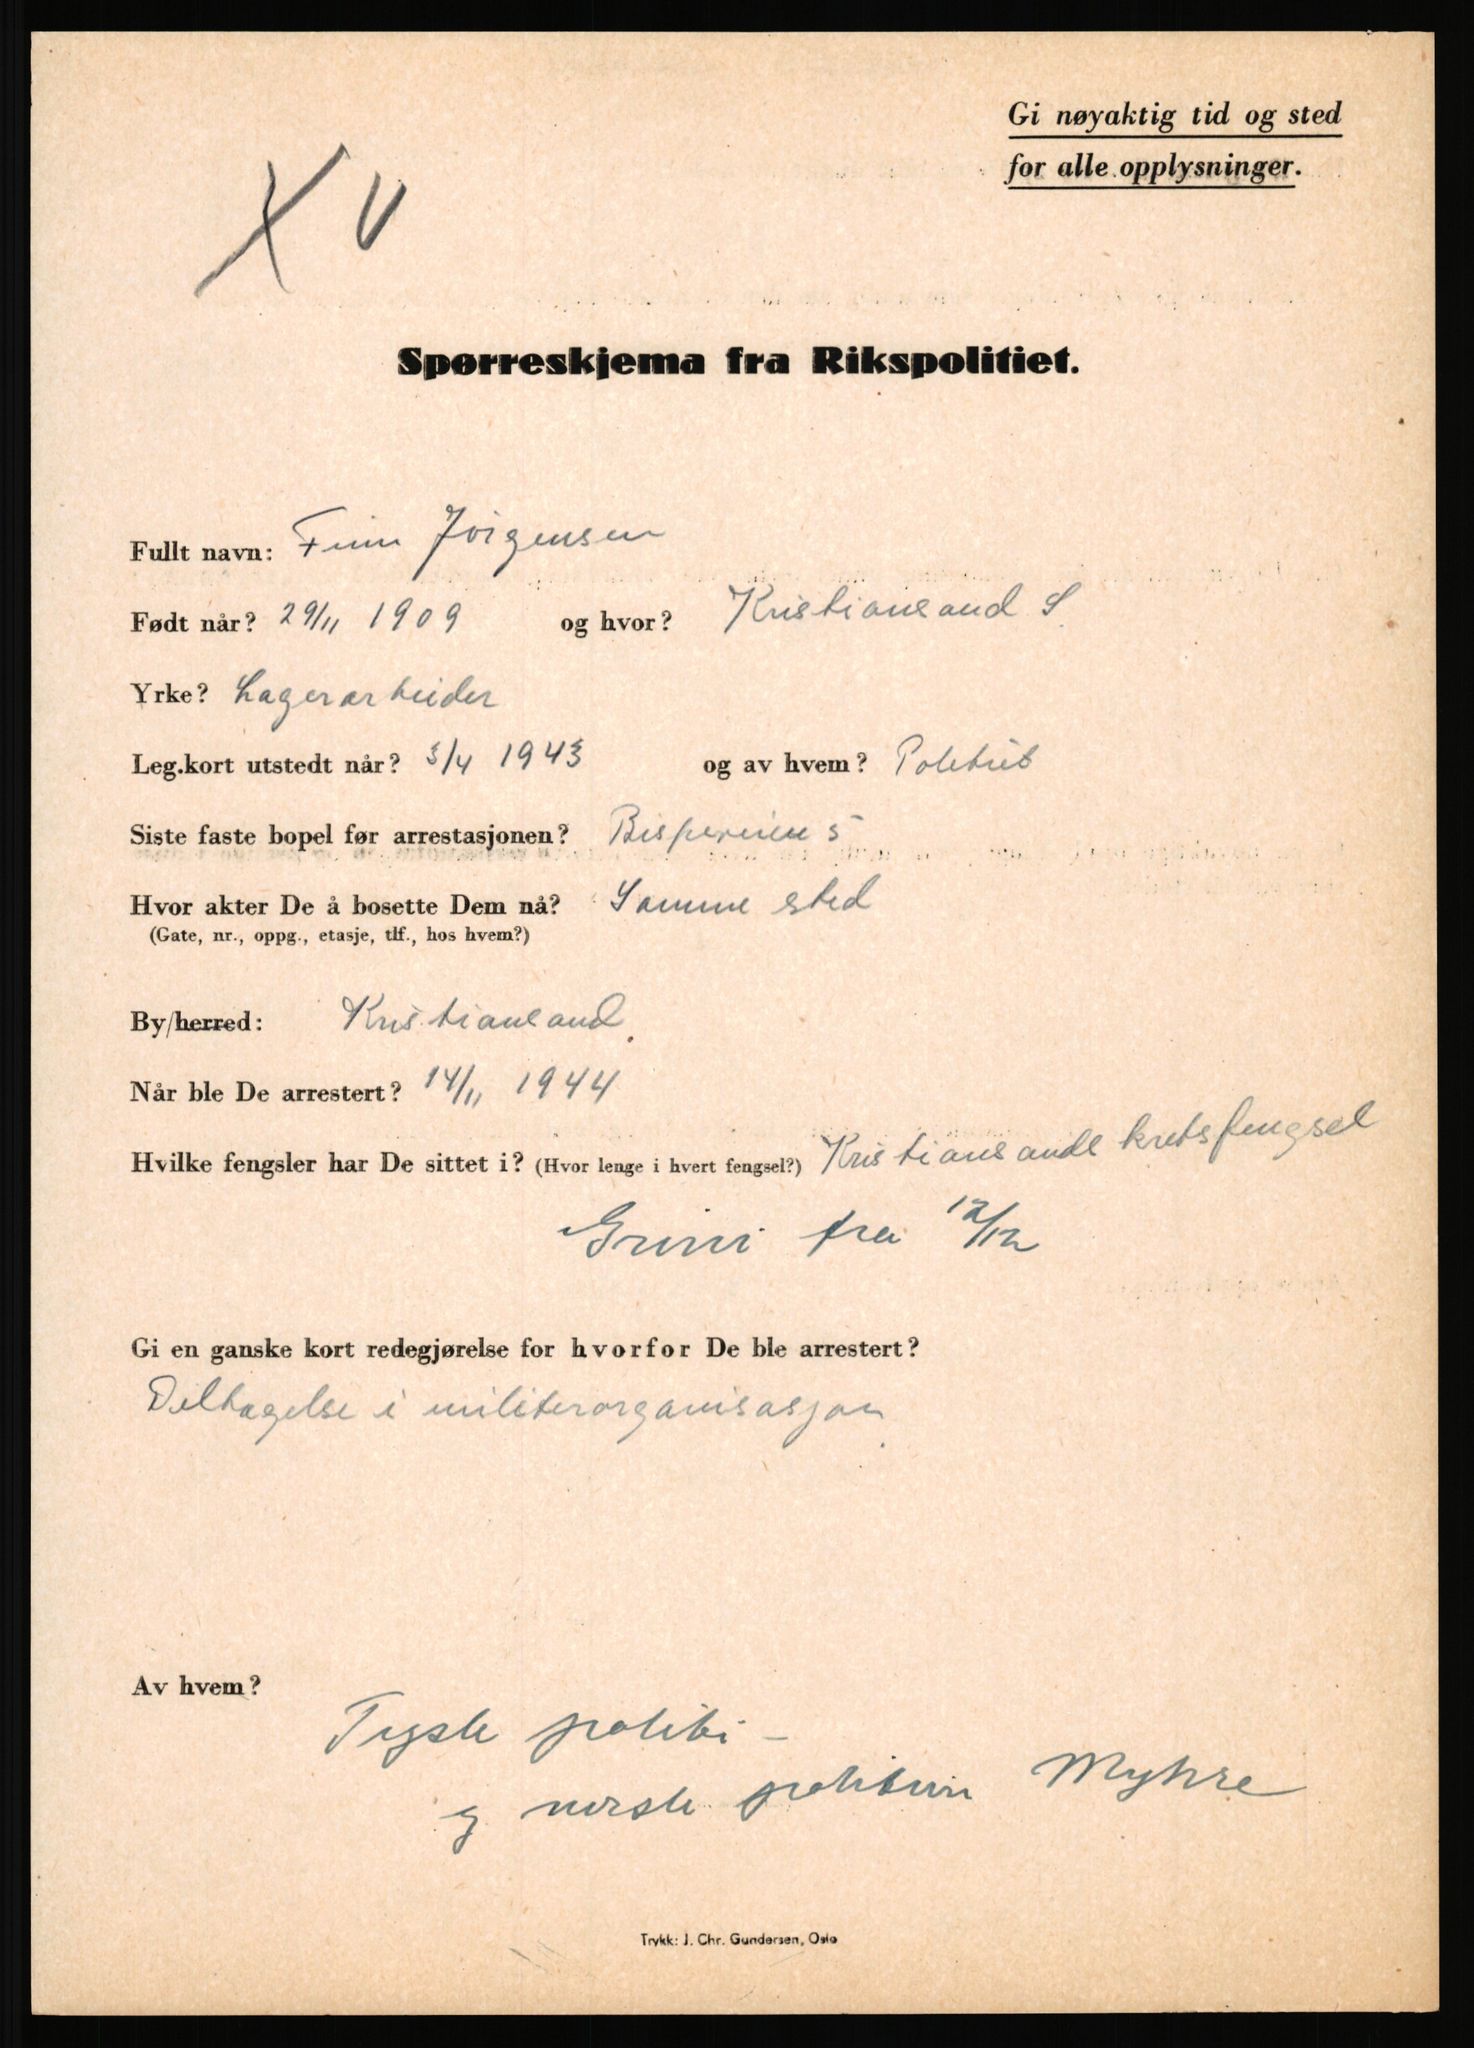 Gi nøyaktig tid og sted
for alle opplysninger.
X V
Spørreskjema fra Rikspolitiet.
Fullt navn: Finn Jörgensen
Født når? 29/11 1909 og hvor? Kristiansand S.
Yrke? Lagerarbeider
Leg.kort utstedt når? 3/4 1943 og av hvem? Politiet
Siste faste bopel før arrestasjonen? 5
Hvor akter De å bosette Dem nå? Samme sted
(Gate, nr., oppg., etasje, tlf., hos hvem?)
By/herred: Kristiansand.
Når ble De arrestert? 14/11 1944
Hvilke fengsler har De sittet i? (Hvor lenge i hvert fengsel?) Kristiansands kretsfengsel
Grini fra 12/12
Gi en ganske kort redegjørelse for hvorfor De ble arrestert?
Deltagelse i militerorganisasjon.
Av hvem?
Tysk politi –
og norsk Myhre
Trykk: J. Chr. Gundersen, Oslo